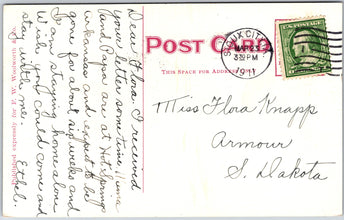 Dear Flora, I received
your letter some time. Mama
and Papa are at Hot Springs
Arkansas and expect to be
gone for about six weeks and
I am staying home alone.
Wish you could come and
stay with me. Ethel.
POST CARD
THIS SPACE FOR ADDRESS ONLY
SIOUX CITY
MAR 23
3:30 PM
1911
Miss Flora Knapp
Armour
S. Dakota